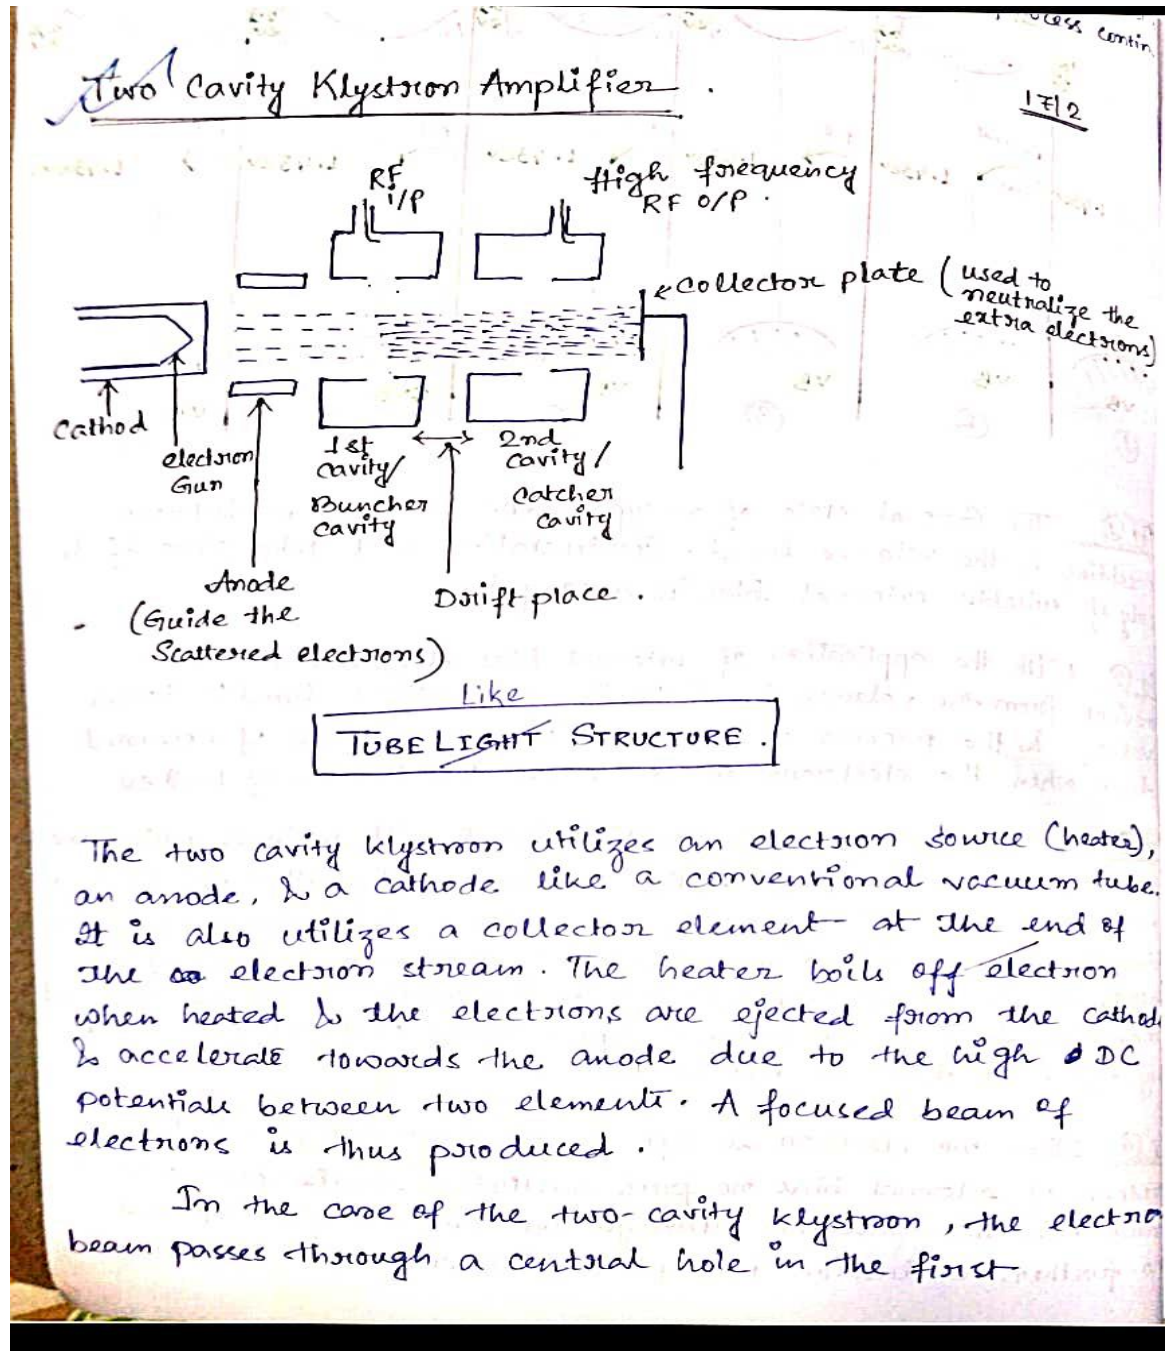 ocess contin
Two Cavity Klystron Amplifier .
17/2
RF
i/P
High frequency
RF O/P .
Collector plate ( used to
neutralize the
extra electrons)
Cathod
electron
Gun
1st
cavity/
Buncher
cavity
2nd
cavity /
Catcher
cavity
Anode
(Guide the
Scattered electrons)
Drift place .
Like
TUBE LIGHT STRUCTURE .
The two cavity klystron utilizes an electron source (heater),
an anode, & a cathode like a conventional vacuum tube.
It is also utilizes a collector element at the end of
the electron stream. The heater boils off electron
when heated & the electrons are ejected from the cathod
& accelerate towards the anode due to the high DC
potentials between two elements. A focused beam of
electrons is thus produced .
In the case of the two-cavity klystron , the electro
beam passes through a central hole in the first